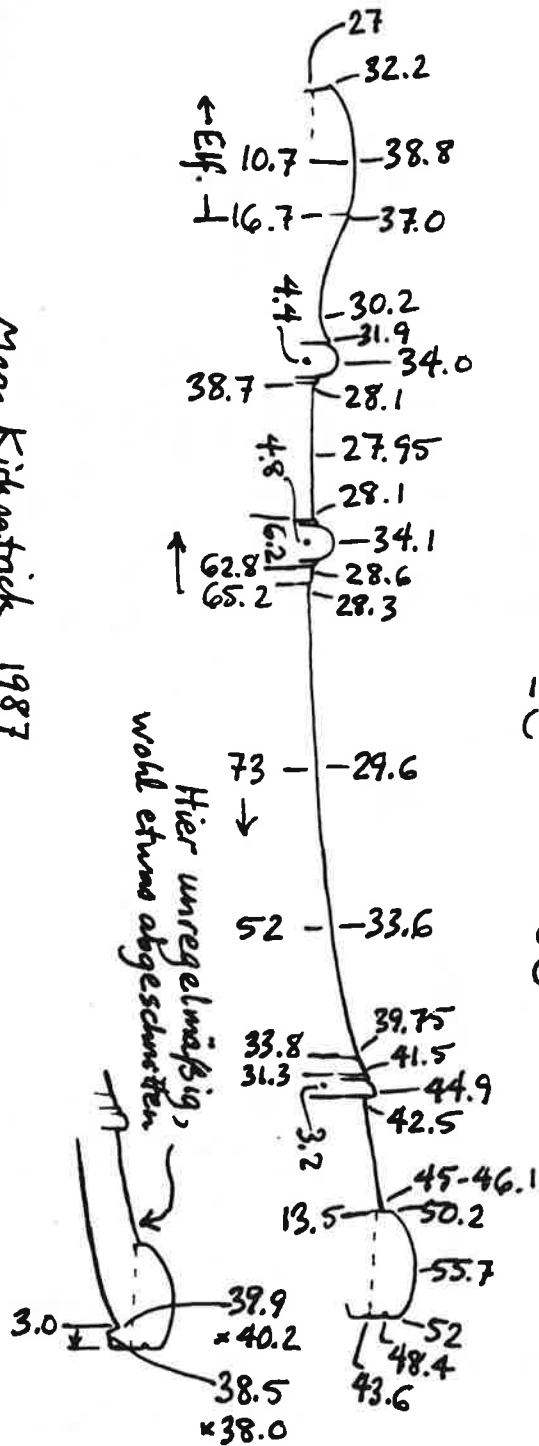 27
32.2
← Elf. ⊥ 10.7 38.8
16.7 37.0
30.2
4.4 31.9
34.0
38.7 28.1
27.95
4.8 28.1
6.2 34.1
62.8 28.6
65.2 28.3
↑
73 29.6
↓
52 33.6
39.75
33.8 41.5
31.3 44.9
3.2 42.5
45-46.1
13.5 50.2
55.7
52
48.4
43.6
Hier unregelmäßig,
wohl etwas abgeschnitten
3.0 39.9
×40.2
38.5
×38.0
1987